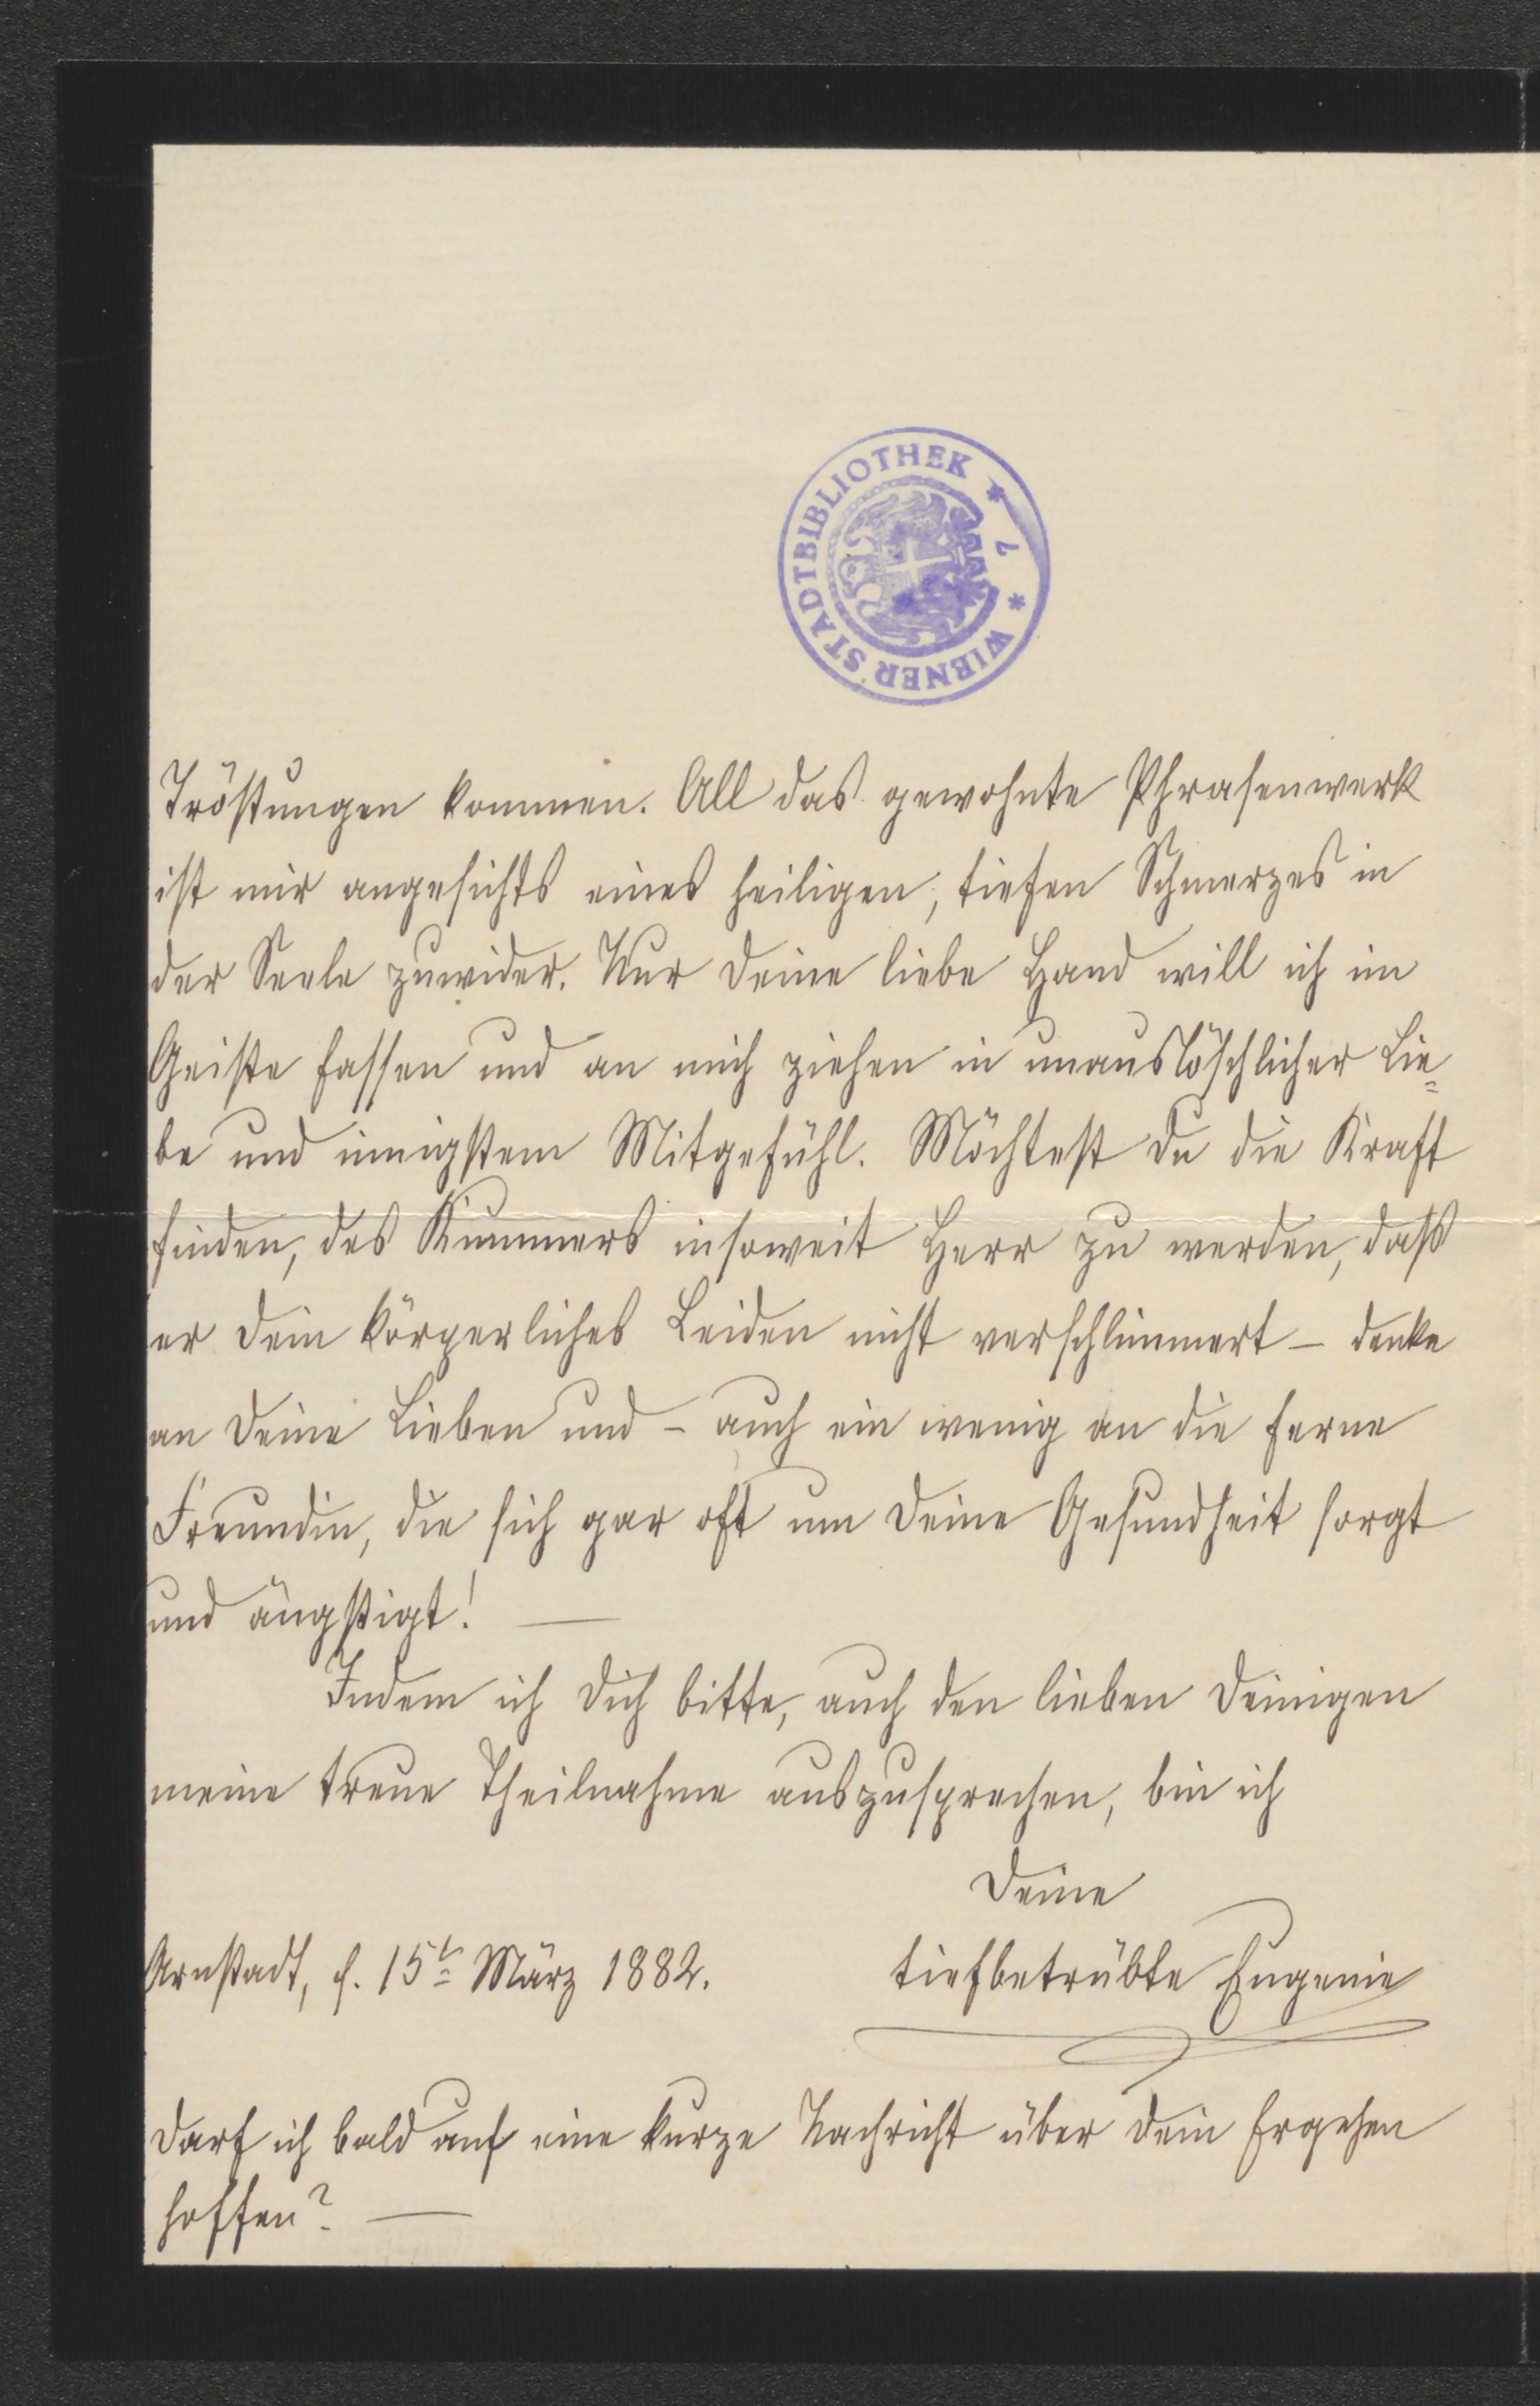 WIENER STADTBIBLIOTHEK * 7 *
Tröstungen kommen. All das gewohnte Phrasenwerk
ist mir angesichts eines heiligen, tiefen Schmerzes in
der Seele zuwider. Nur Deine liebe Hand will ich im
Geiste fassen und an mich ziehen in unauslöschlicher Lie=
be und innigstem Mitgefühl. Möchtest Du die Kraft
finden, des Kummers insoweit Herr zu werden, daß
er Dein körperliches Leiden nicht verschlimmert – denke
an Deine Lieben und – auch ein wenig an die ferne
Freundin, die sich gar oft um Deine Gesundheit sorgt
und ängstigt! —
Indem ich Dich bitte, auch den lieben Deinigen
meine treue Theilnahme auszusprechen, bin ich
Deine
Arnstadt, d. 15t März 1882. tiefbetrübte Eugenie
Darf ich bald auf eine kurze Nachricht über Dein Ergehen
hoffen? —